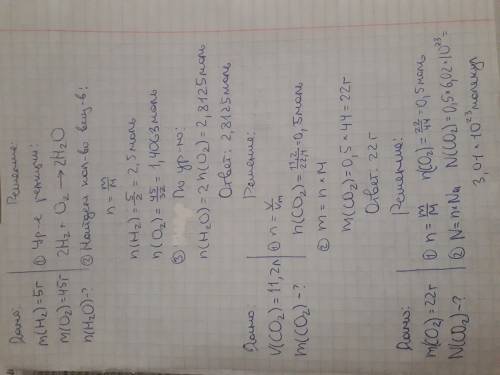 Дано:
m(H₂)=5г
m(O₂)=45г
n(H₂O)-?
Решение:
① Ур-е реакции:
2H₂ + O₂ → 2H₂O
② Найдем кол-во вещ-в:
n = m/M
n(H₂) = 5/2 = 2,5 моль
n(O₂) = 45/32 = 1,4063 моль
③ По ур-ю:
n(H₂O) = 2n(O₂) = 2,8125 моль
Ответ: 2,8125 моль
Дано:
V(CO₂) = 11,2л
m(CO₂) -?
Решение:
① n = V/Vm
n(CO₂) = 11,2/22,4 = 0,5 моль
② m = n × M
m(CO₂) = 0,5 × 44 = 22г
Ответ: 22г
Дано:
m(CO₂) = 22г
N(CO₂) -?
Решение:
① n = m/M n(CO₂) = 22/44 = 0,5 моль
② N = n × Na N(CO₂) = 0,5 × 6,02 × 10²³ =
3,01 × 10²³ молекул